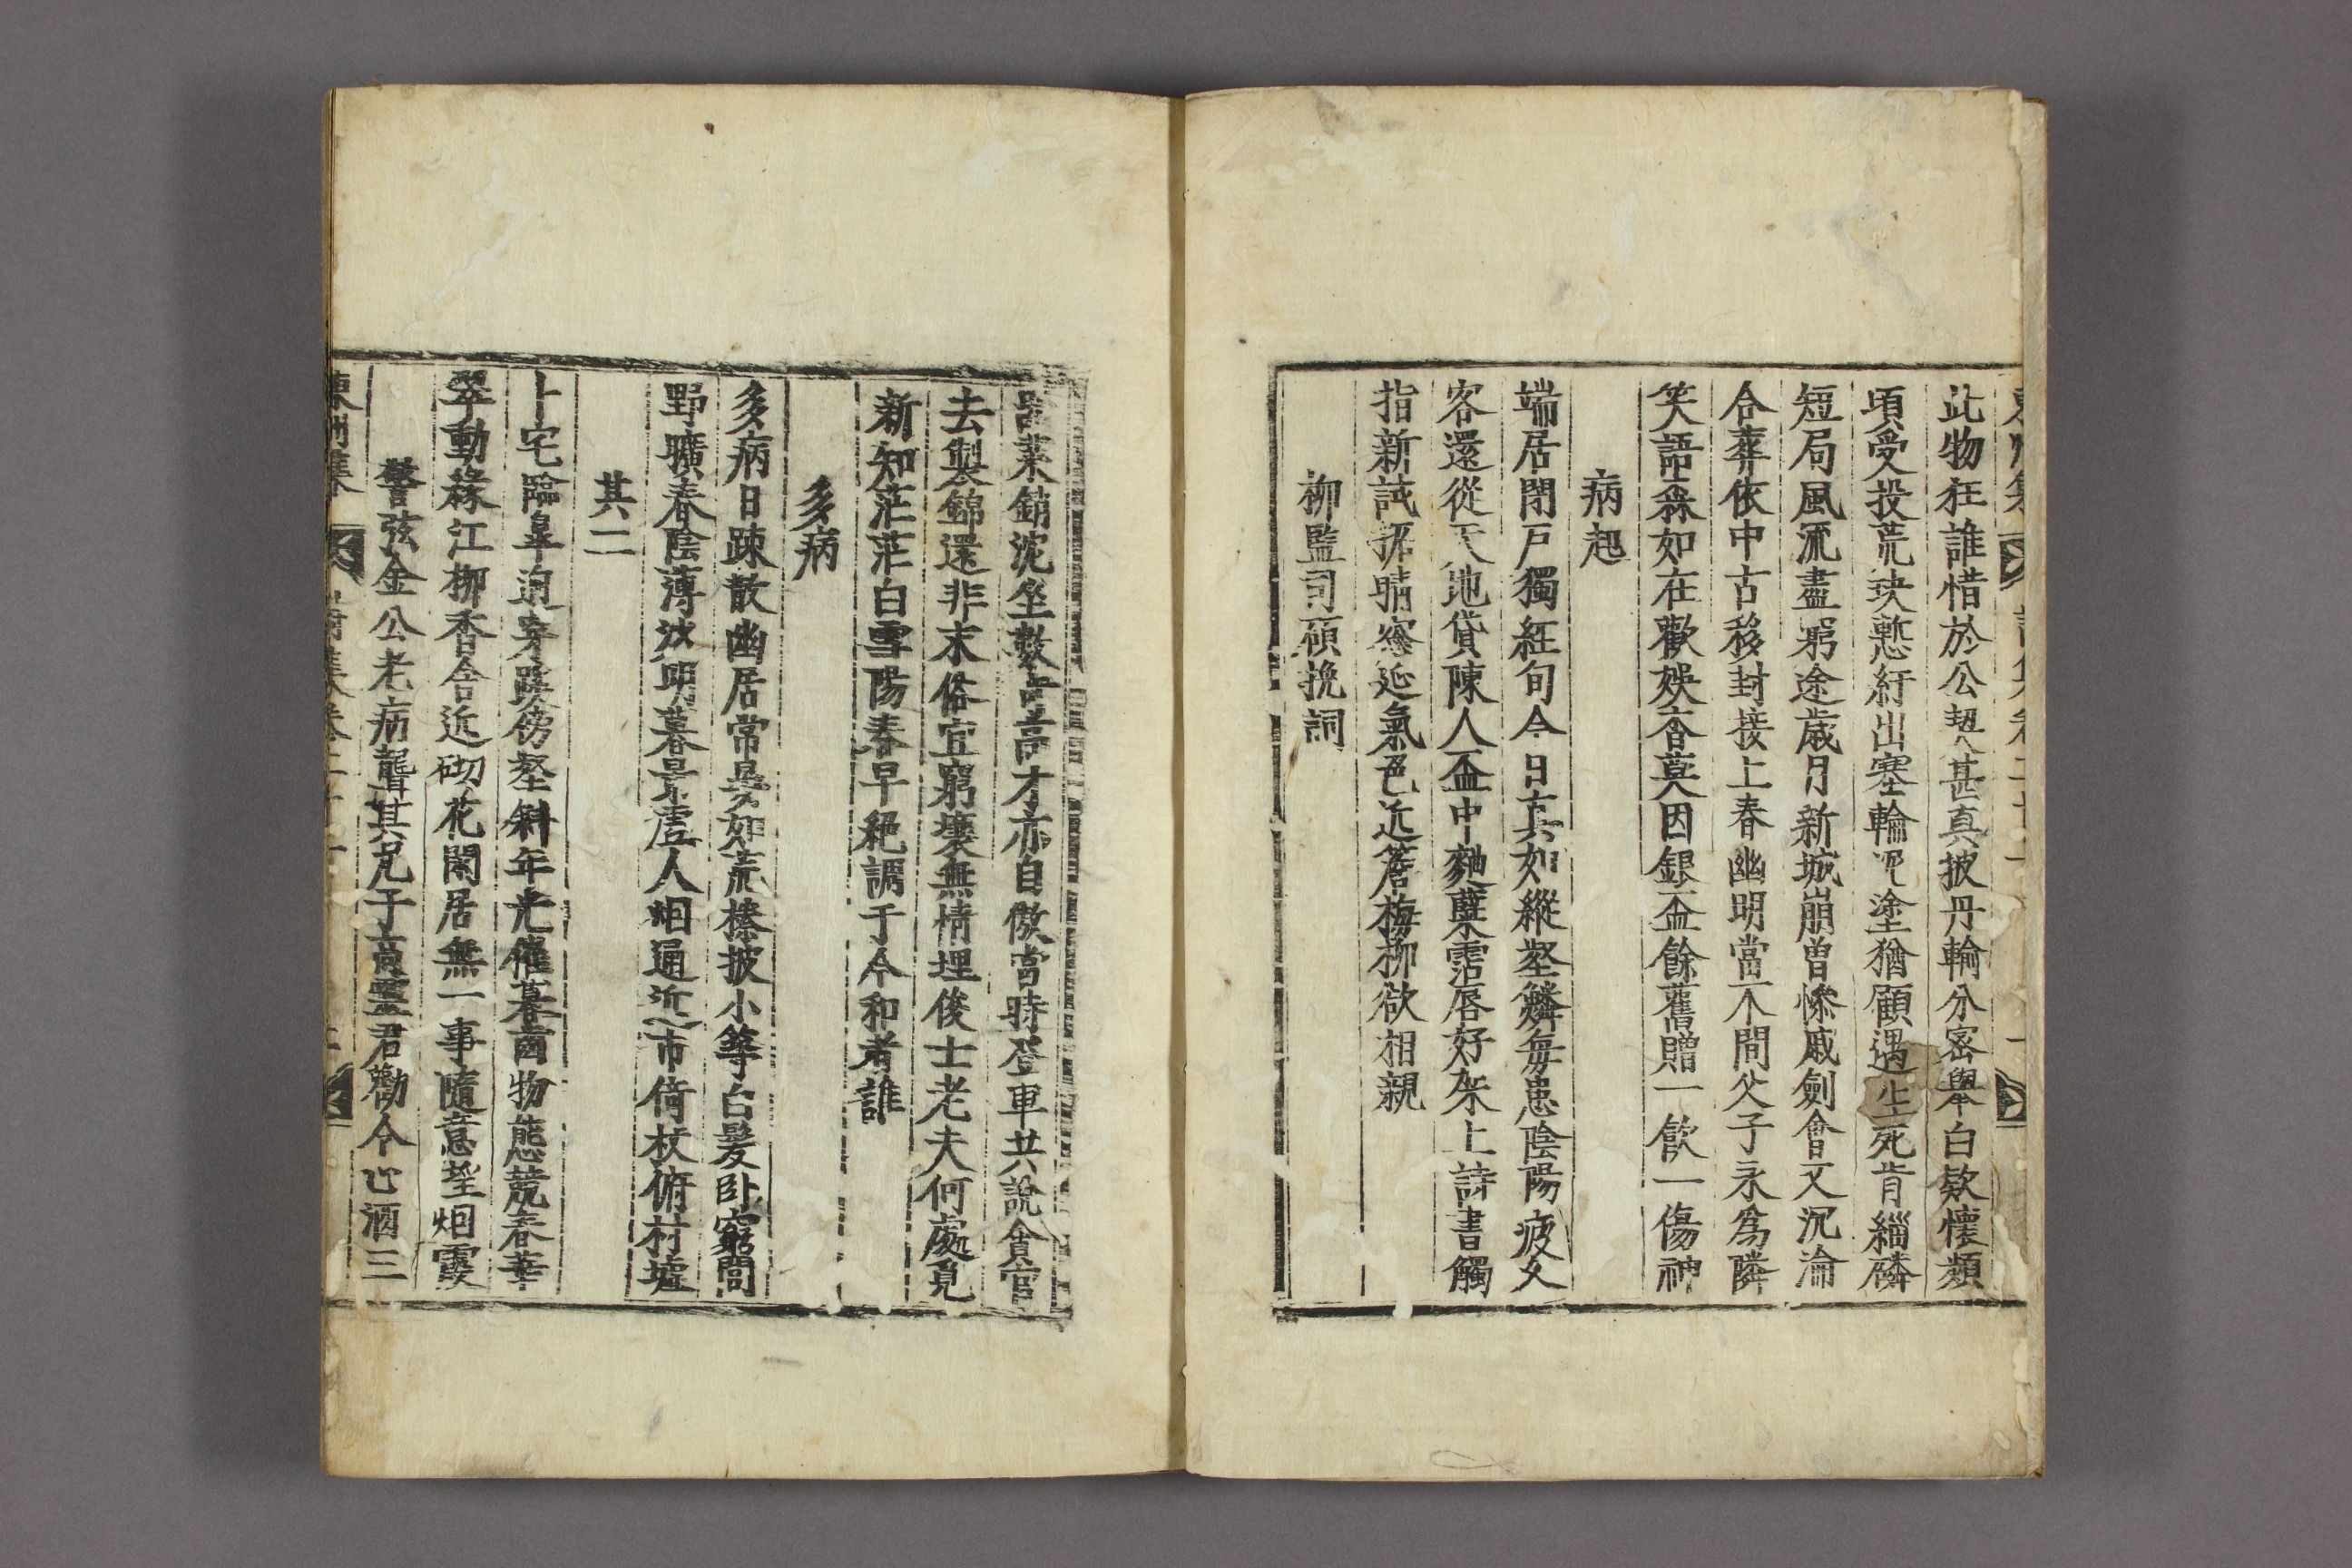 此物枉誰惜於公契甚眞披丹輪分密舉白欵懷頻
頃受投荒玦慙紆出塞輪泥塗猶顧遇生死肯緇磷
短局風流盡窮途歲月新城崩曽慘戚劍會又沉淪
合葬依中古移封接上春幽明當不間父子永爲隣
笑語森如在歡娛杳莫因銀盃餘舊贈一飮一傷神
病起
端居閉戶獨経旬今日真如縱壑鱗每患陰陽疲久
客還從天地貸陳人盃中麴糵霑唇好架上詩書觸
指新試拓晴窓延氣色近簷梅柳欲相親
柳監司碩挽詞
萊銷沈坐數高才亦自傲當時登車共說貪官
去製錦還非末俗宜窮壤無情埋俊士老夫何處覓
新知茫茫白雪陽春早絕調于今和者誰
多病
多病日踈散幽居常晏如荒榛披小等白髮卧窮閭
野曠春陰薄沙明暮景虛人烟通近市倚杖俯村墟
其二
卜宅臨皐迥穿蹊傍壑斜年光催暮齒物態競春華
翠動緣江柳香含近砌花閑居無一事隨意望烟霞
警弦金公老病聾其兄子高靈君勸令止酒三
東州集 詩集卷二十一